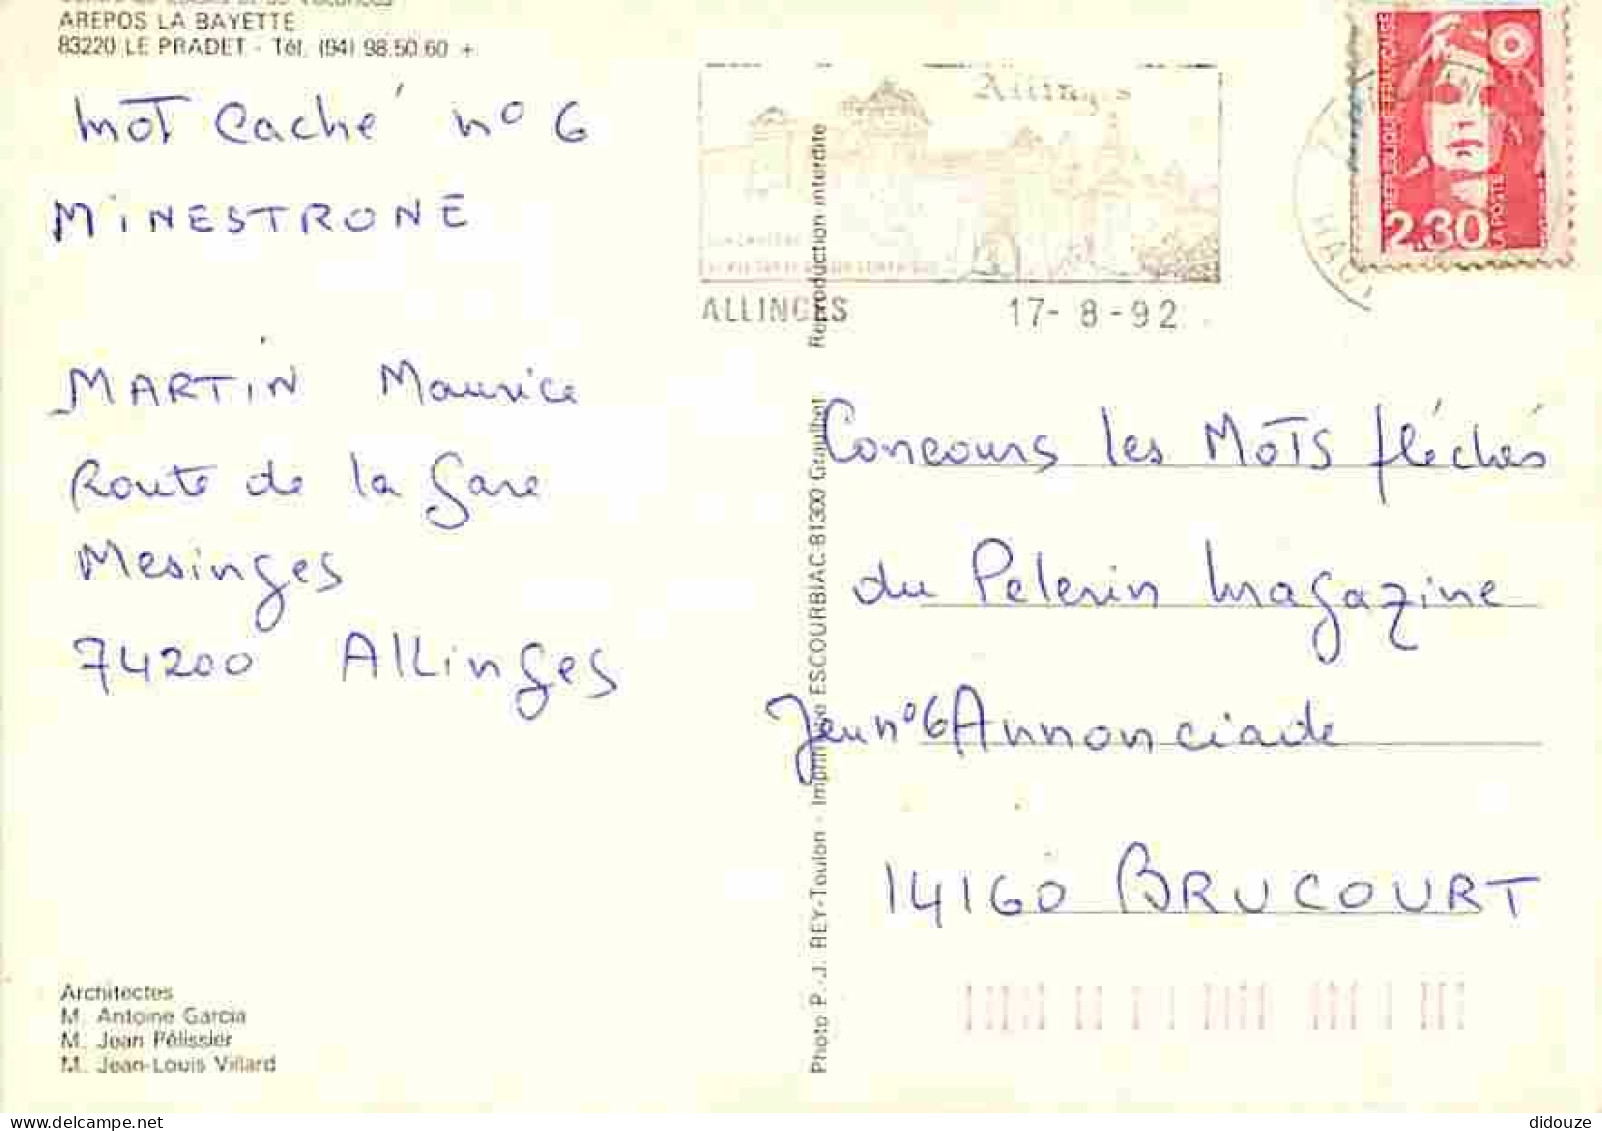 AREPOS LA BAYETTE
83220 LE PRADET - Tél. (94) 98.50.60 +
Mot Caché n° 6
MINESTRONE
MARTIN Maurice
Route de la Gare
Mesinges
74200 Allinges
Architectes
M. Antoine Garcia
M. Jean Pélissier
M. Jean-Louis Villard
Allinges
ALLINGES 17-8-92
Photo P.-J. REY-Toulon - Imprimerie ESCOURBIAC-81300 Graulhet Reproduction interdite
REPUBLIQUE FRANÇAISE
2,30
LA POSTE
Concours les Mots fléchés
du Pelerin Magazine
Jeu n°6 Annonciade
14160 BRUCOURT
didouze